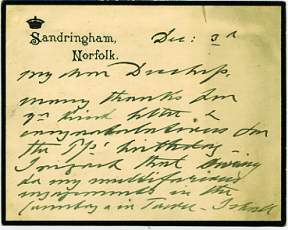 Sandringham,
Norfolk.
Dec: 3d
My dear
many thanks for
yr kind letter &
congratulations for
the birthday
I that owing
to my multifarious
engagements in the
& in Town - I shall